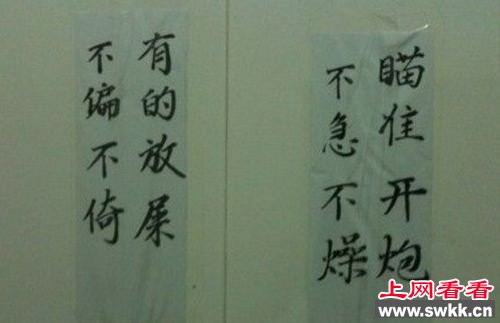 瞄准开炮
不急不燥
有的放屎
不偏不倚
上网看看
www.swkk.cn